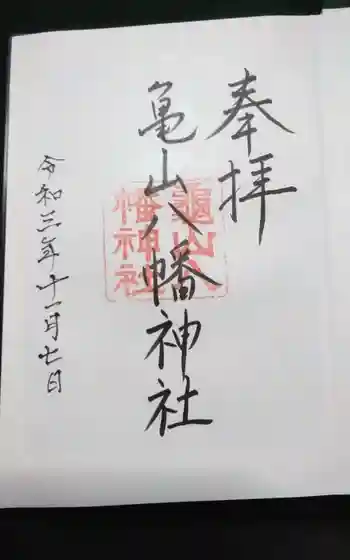 奉拝
亀山八幡神社
令和三年十一月七日
龜山八
幡神社